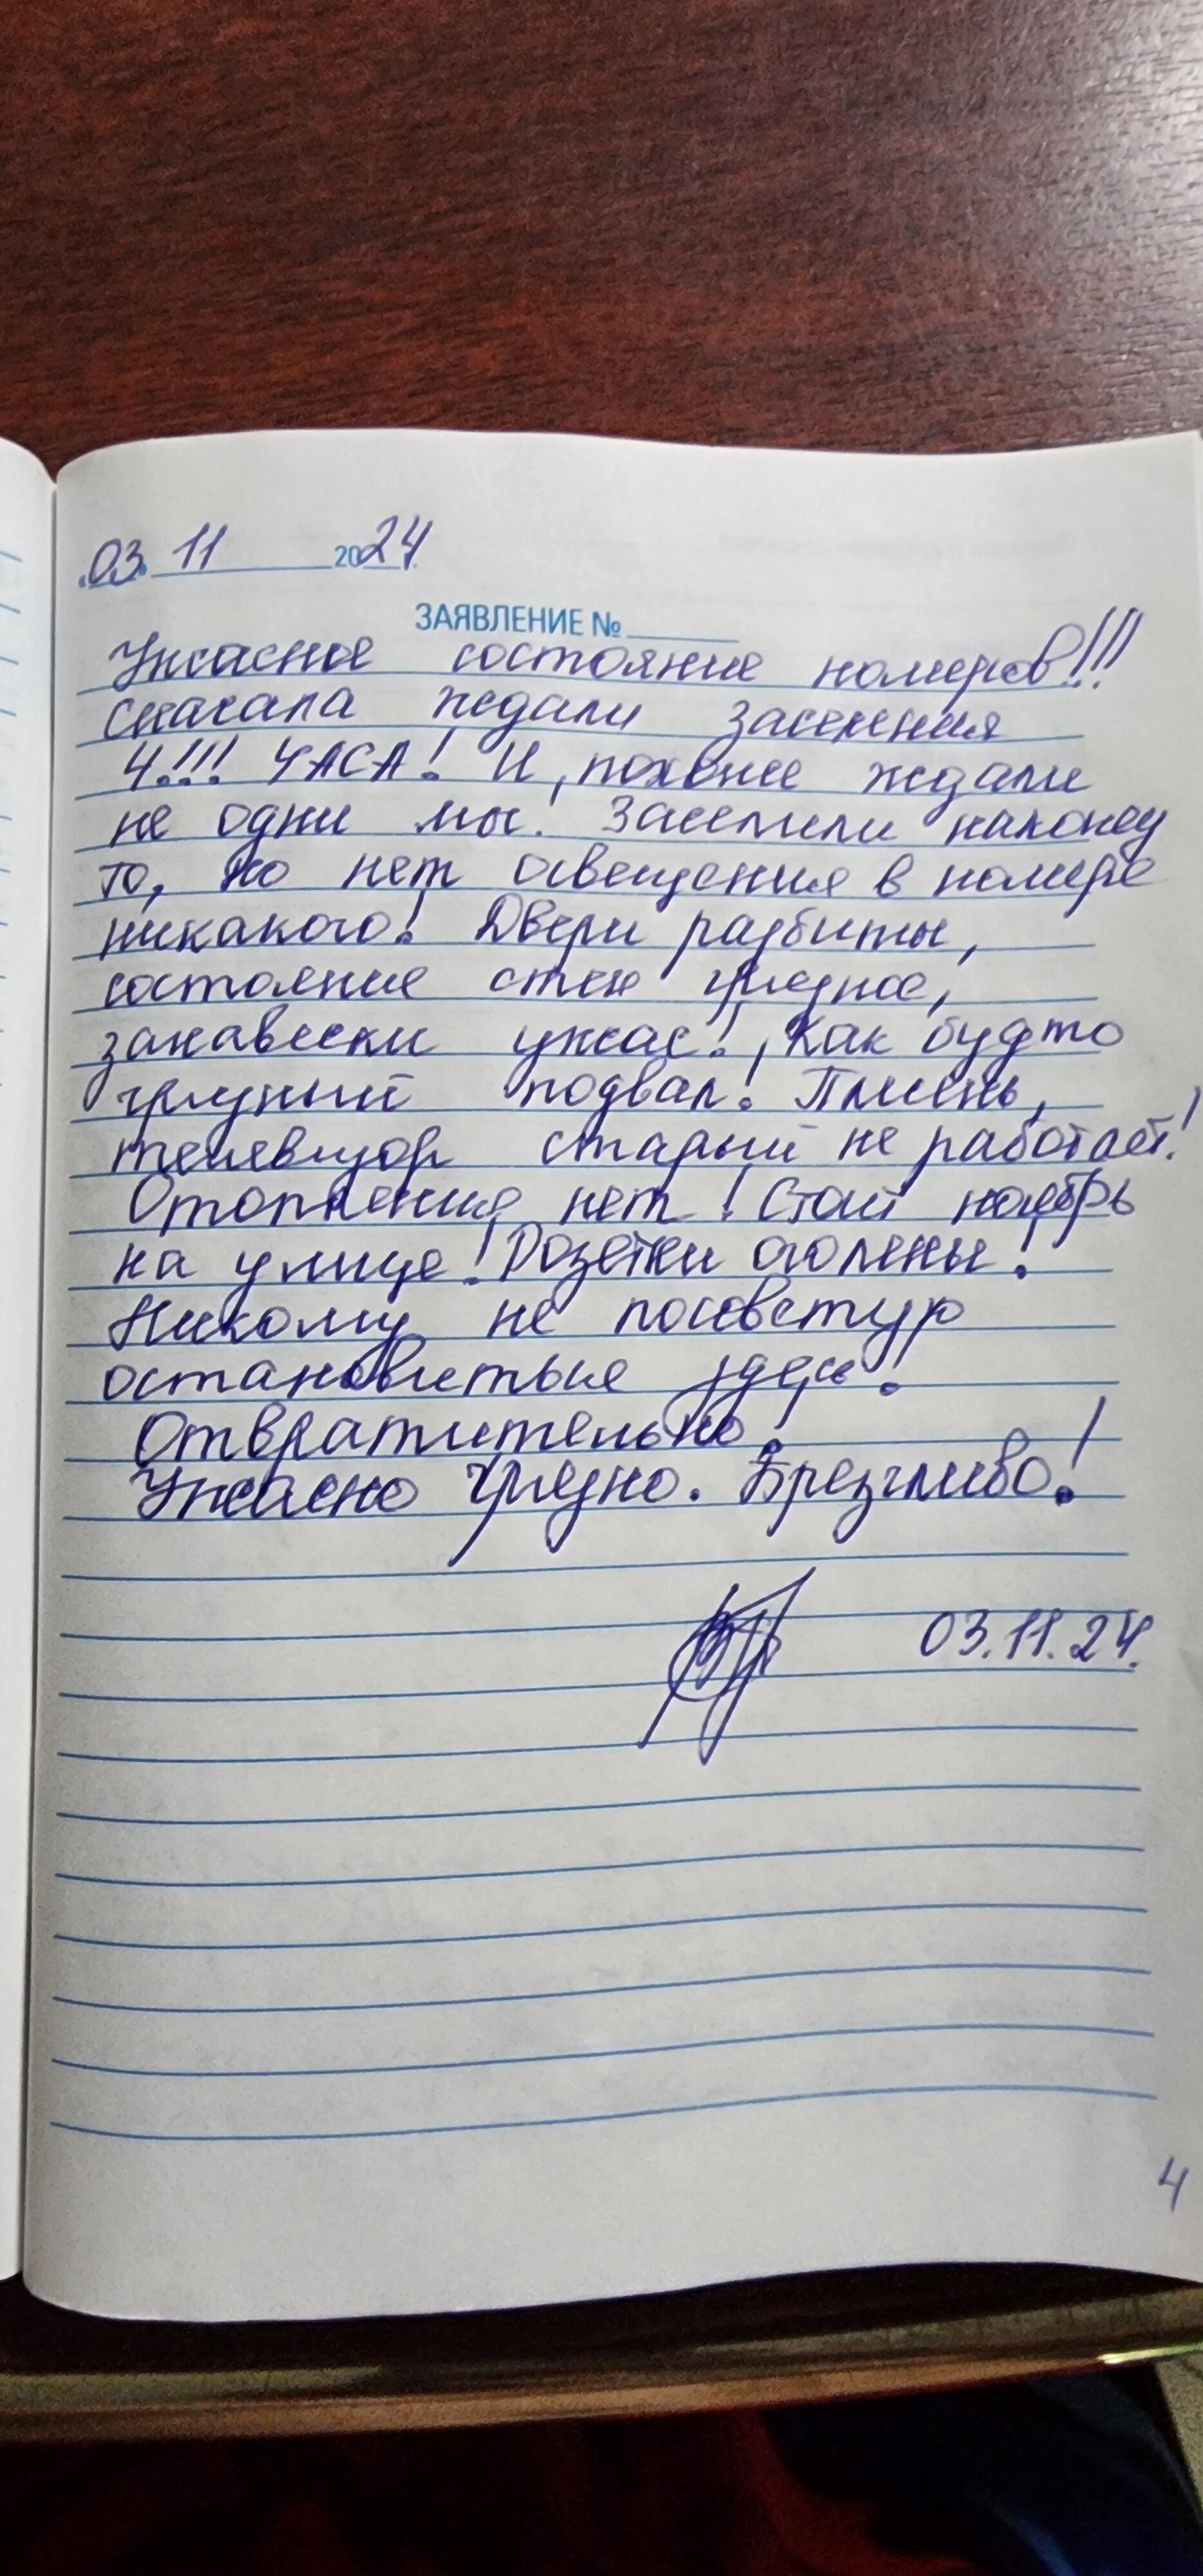 .03. 11 2024
ЗАЯВЛЕНИЕ №
Ужасное состояние номеров!!!
Сначала ждали заселения
4!!! ЧАСА! И, похоже ждали
не одни мы. Заселили наконец
то, но нет освещения в номере
никакого! Двери разбиты,
состояние стен грязное,
занавески ужас! Как будто
грязный подвал! Плесень,
телевизор старый не работает!
Отопления нет! Стоит ноябрь
на улице! Розетки оголены!
Никому не посоветую
остановиться здесь!
Отвратительно!
Ужасно грязно. Брезгливо!
03.11.24.
4